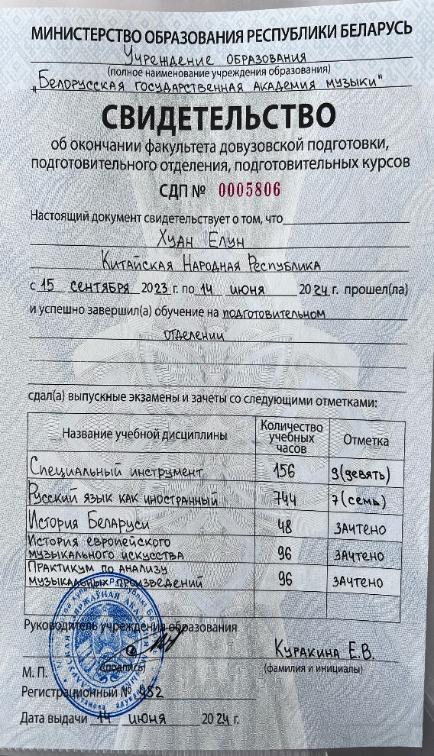 МИНИСТЕРСТВО ОБРАЗОВАНИЯ РЕСПУБЛИКИ БЕЛАРУСЬ
Учреждение образования
(полное наименование учреждения образования)
„Белорусская государственная академия музыки"
СВИДЕТЕЛЬСТВО
об окончании факультета довузовской подготовки,
подготовительного отделения, подготовительных курсов
СДП № 0005806
Настоящий документ свидетельствует о том, что
Хуан Елун
Китайская Народная Республика
с 15 сентября 2023 г. по 14 июня 2024 г. прошел(ла)
и успешно завершил(а) обучение на подготовительном
отделении
сдал(а) выпускные экзамены и зачеты со следующими отметками:
Название учебной дисциплины Количество учебных часов Отметка
Специальный инструмент 156 9 (девять)
Русский язык как иностранный 744 7 (семь)
История Беларуси 48 зачтено
История европейского
музыкального искусства 96 зачтено
Практикум по анализу
музыкальных произведений 96 зачтено
Руководитель учреждения образования
Куракина Е.В.
(подпись) (фамилия и инициалы)
М. П.
Регистрационный № 952
Дата выдачи 14 июня 2024 г.